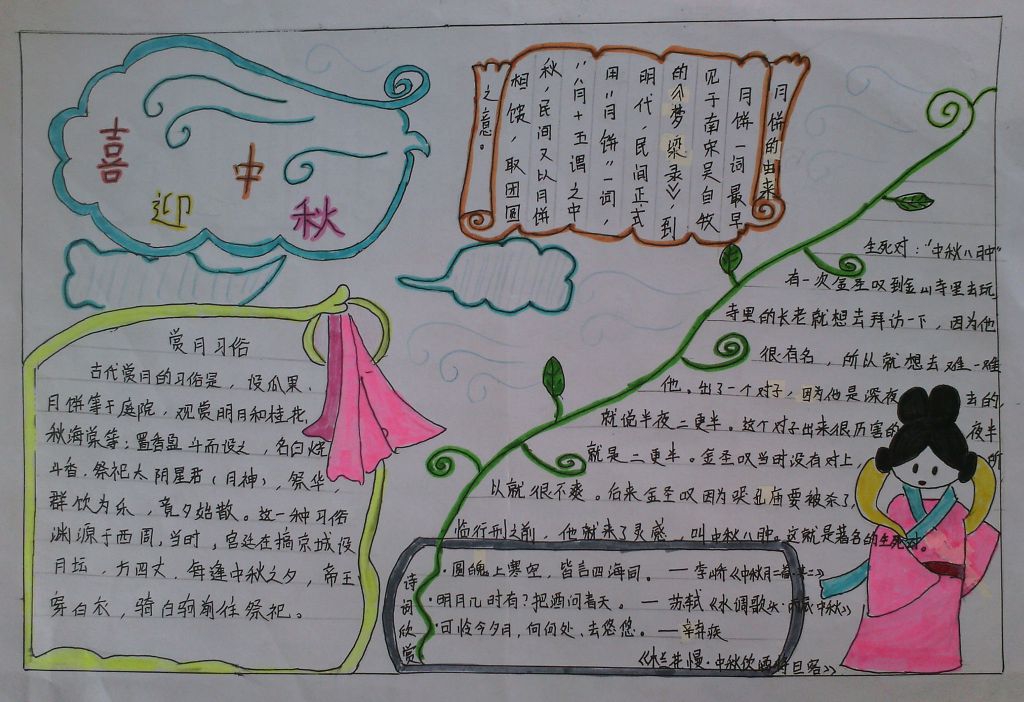 喜迎中秋
月饼的由来
月饼一词最早
见于南宋吴自牧
的《梦梁录》到
明代，民间正式
用“月饼”一词，
“八月十五谓之中
秋，民间又以月饼
相馈，取团圆
之意。
赏月习俗
古代赏月的习俗是，设瓜果、
月饼等于庭院，观赏明月和桂花、
秋海棠等；置香 斗而设之，名曰烧
斗香。祭祀太阴星君（月神），祭毕，
群饮为乐，竟夕始散。这一种习俗
渊源于西周，当时，宫廷在搞京城设
月坛，方四丈，每逢中秋之夕，帝王
穿白衣，骑白驹前往祭祀。
生死对：“中秋八月中”
有一次金圣叹到金山寺里去玩
寺里的长老就想去拜访一下，因为他
很有名，所以就想去难一难
他。出了一个对子，因为他是深夜 去的，
就说半夜二更半。这个对子出来很厉害的 夜半
就是二更半。金圣叹当时没有对上， 所
以就很不爽。后来金圣叹因为哭孔庙要被杀了，
临行刑之前，他就来了灵感，叫中秋八月中。这就是著名的生死对。
诗词欣赏
·圆魄上寒空，皆言四海同。—李峤《中秋月二首·其二》
·明月几时有？把酒问青天。—苏轼《水调歌头·丙辰中秋》
·可怜今夕月，向何处、去悠悠。—辛弃疾
《木兰花慢·中秋饮酒将旦客》